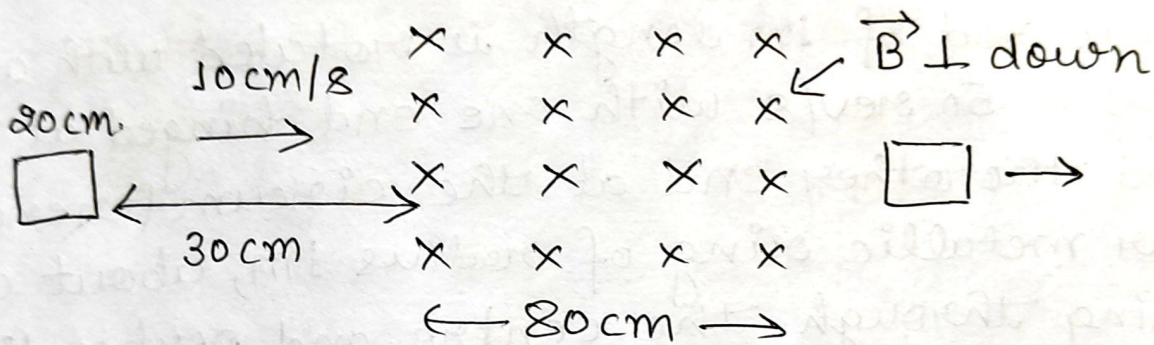 × × × × B ⊥ down
10cm/s
× × × ×
20cm.
× × × ×
30cm
× × × ×
80cm